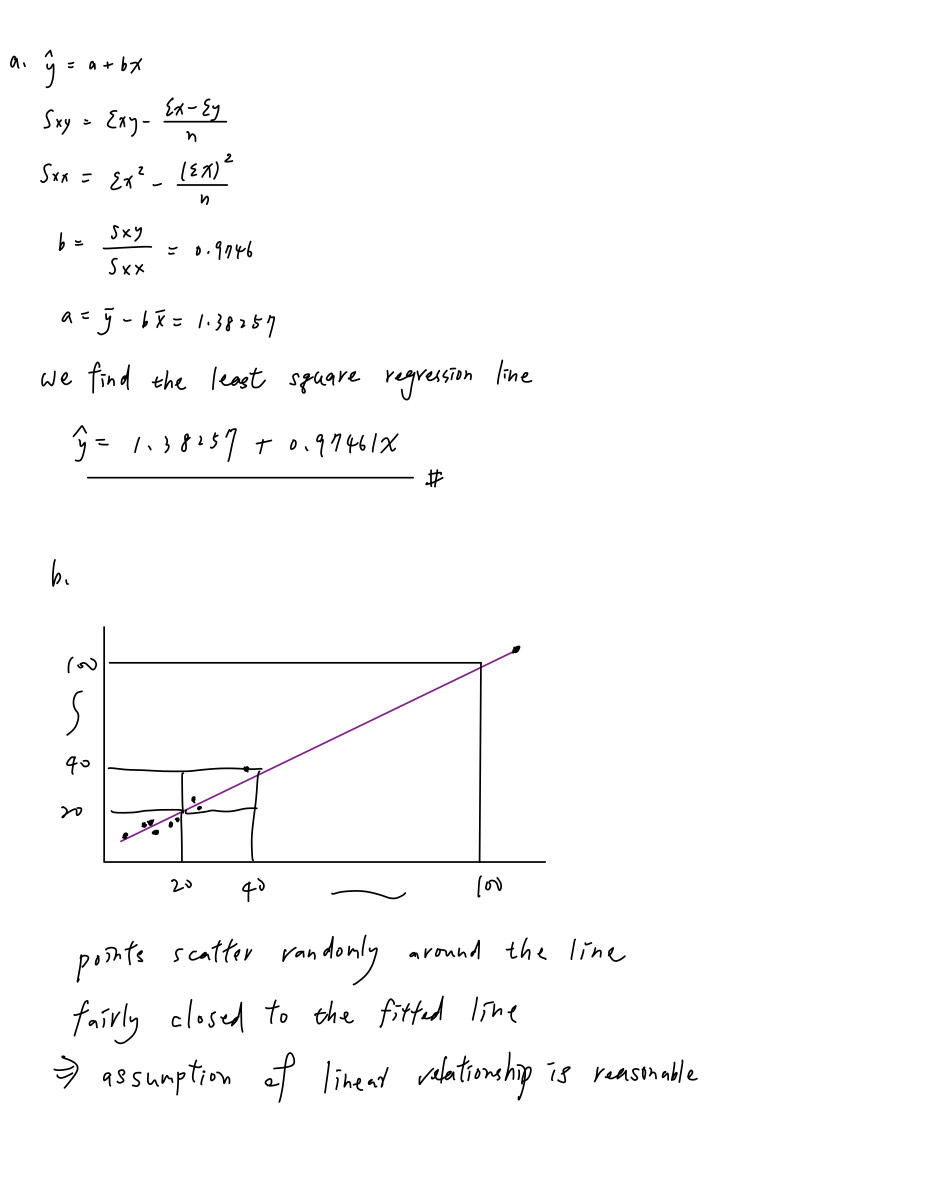 a. ŷ = a + bx
Sxy = Σxy - (Σx - Σy)/n
Sxx = Σx² - (Σx)²/n
b = Sxy/Sxx = 0.9746
a = ȳ - bx̄ = 1.38257
we find the least square regression line
ŷ = 1.38257 + 0.97461x
#
b.
100
40
20
20 40 100
points scatter randonly around the line
fairly closed to the fitted line
⇒ assumption of linear relationship is reasonable